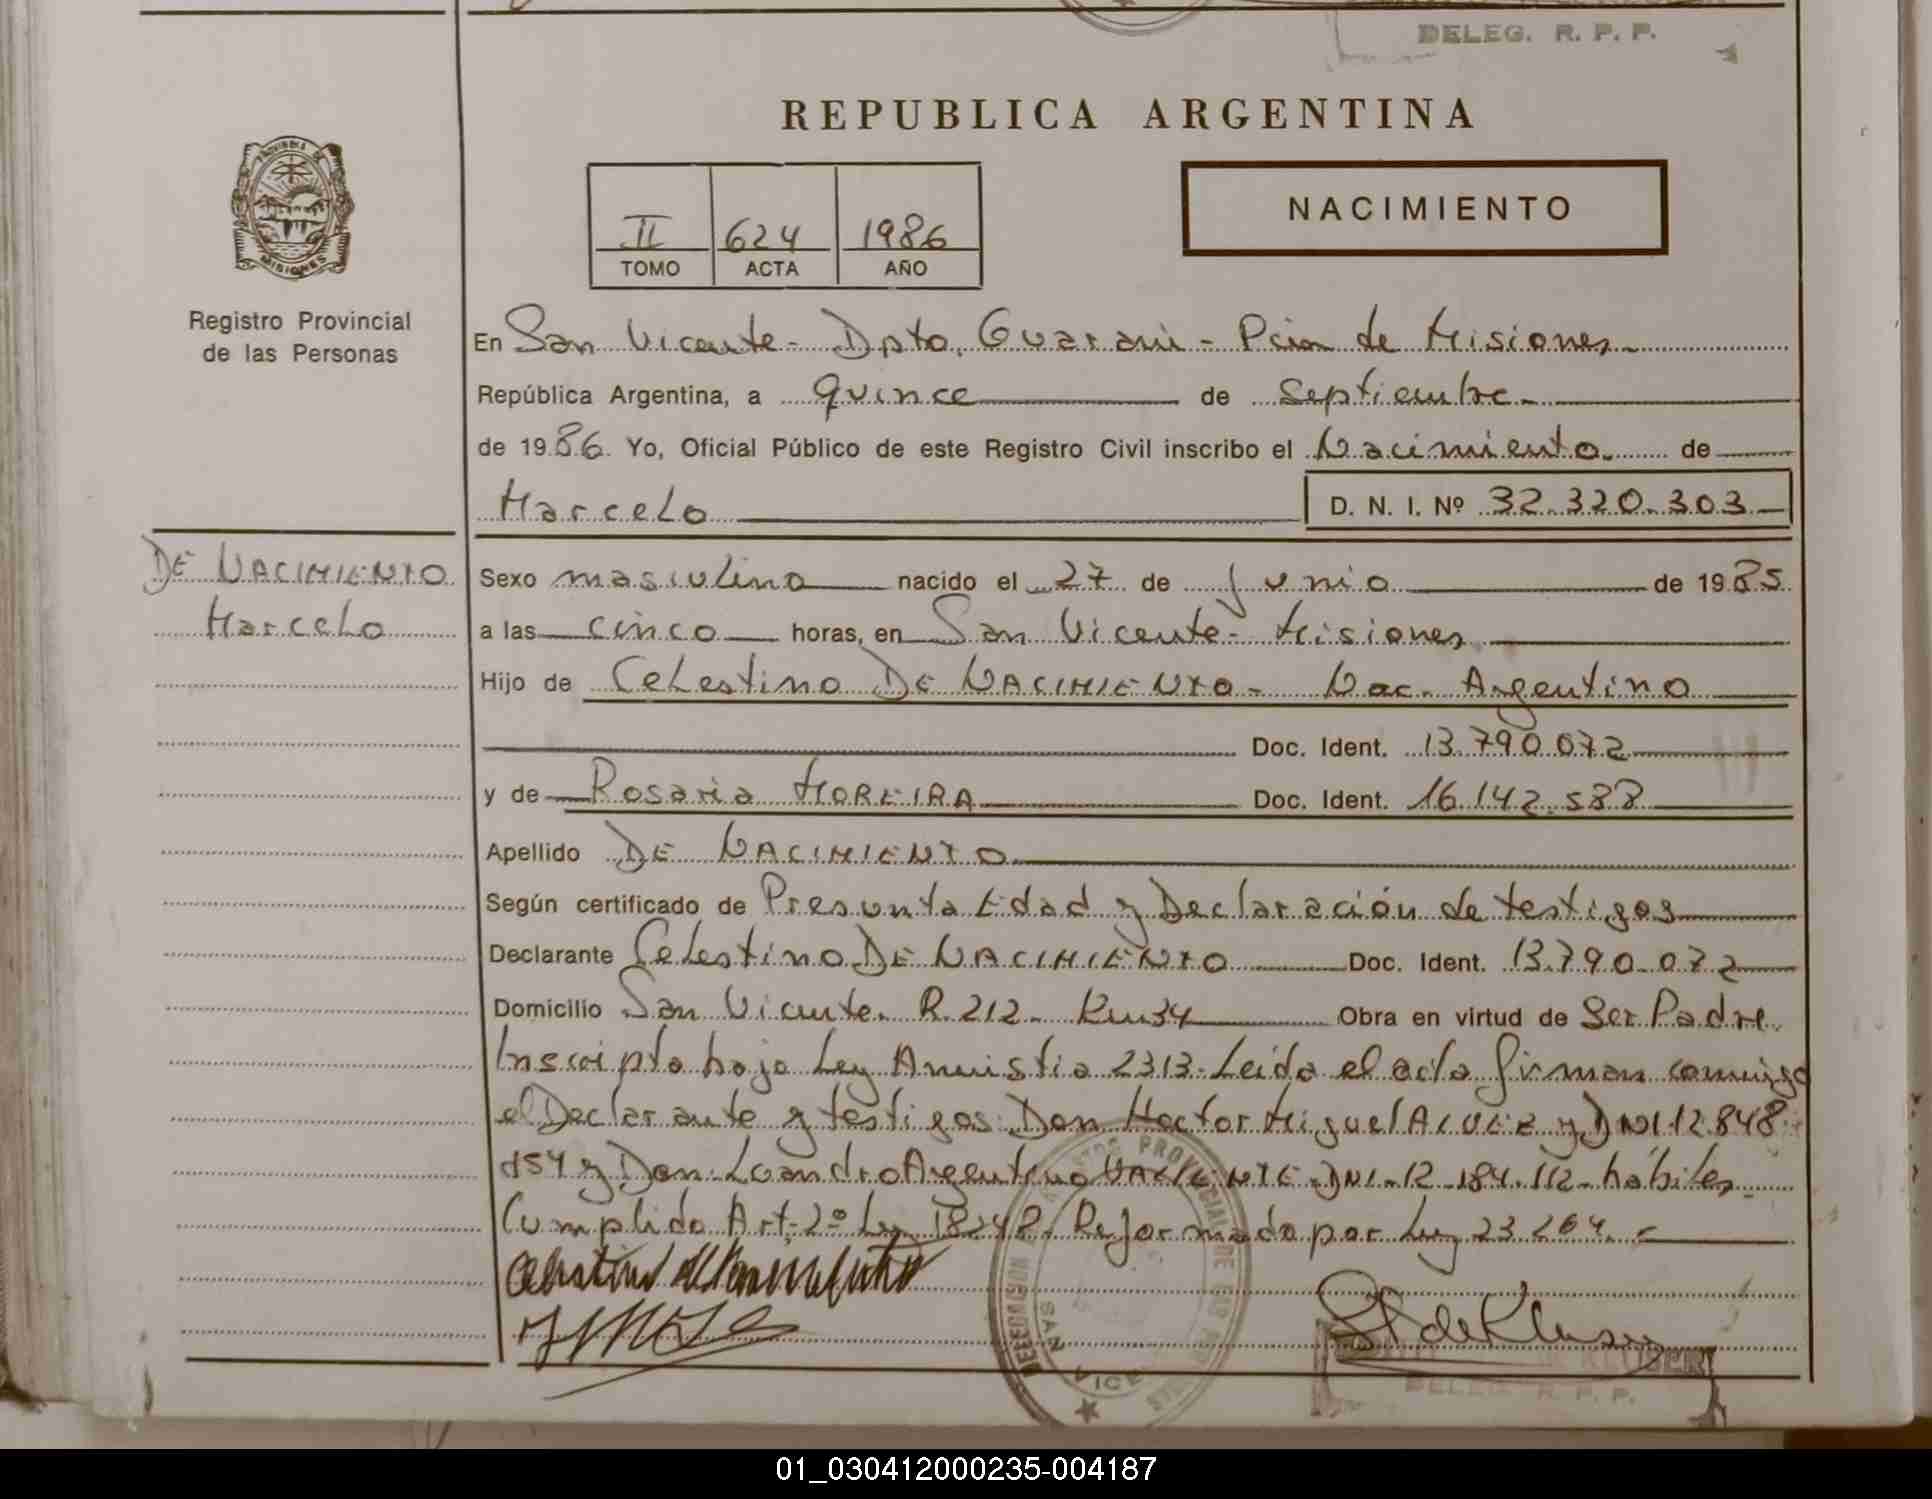 DELEG. R. P. P.
REPUBLICA ARGENTINA
PROVINCIA DE
MISIONES
II 624 1986
TOMO ACTA AÑO
NACIMIENTO
Registro Provincial
de las Personas
En San Vicente - Dpto. Guarani - Pcia de Misiones
República Argentina, a quince de Septiembre
de 1986. Yo, Oficial Público de este Registro Civil inscribo el Nacimiento de
Marcelo D. N. I. Nº 32.320.303
DE NACIMIENTO
Marcelo
Sexo masculino nacido el 27 de Junio de 1985
a las cinco horas, en San Vicente - Misiones
Hijo de Celestino DE NACIMIENTO - Nac. Argentino
Doc. Ident. 13.790.072
y de Rosaria MOREIRA Doc. Ident. 16.142.588
Apellido DE NACIMIENTO
Según certificado de Presunta Edad y Declaración de testigos
Declarante Celestino DE NACIMIENTO Doc. Ident. 13.790.072
Domicilio San Vicente. R. 212 - Km 34 Obra en virtud de Ser Padre.
Inscripto bajo Ley Amnistia 2313 - Leida el acta firman conmigo
el Declarante y testigos: Don Hector Miguel y DNI 12.848.
154 y Don Leandro Argentino VALIENTE DNI - 12.184.112 - hábiles
Cumplido Art. 2º Ley 18248 - Reformado por Ley 23.264. -
SAN VICE
DELEG. R. P. P.
01_030412000235-004187